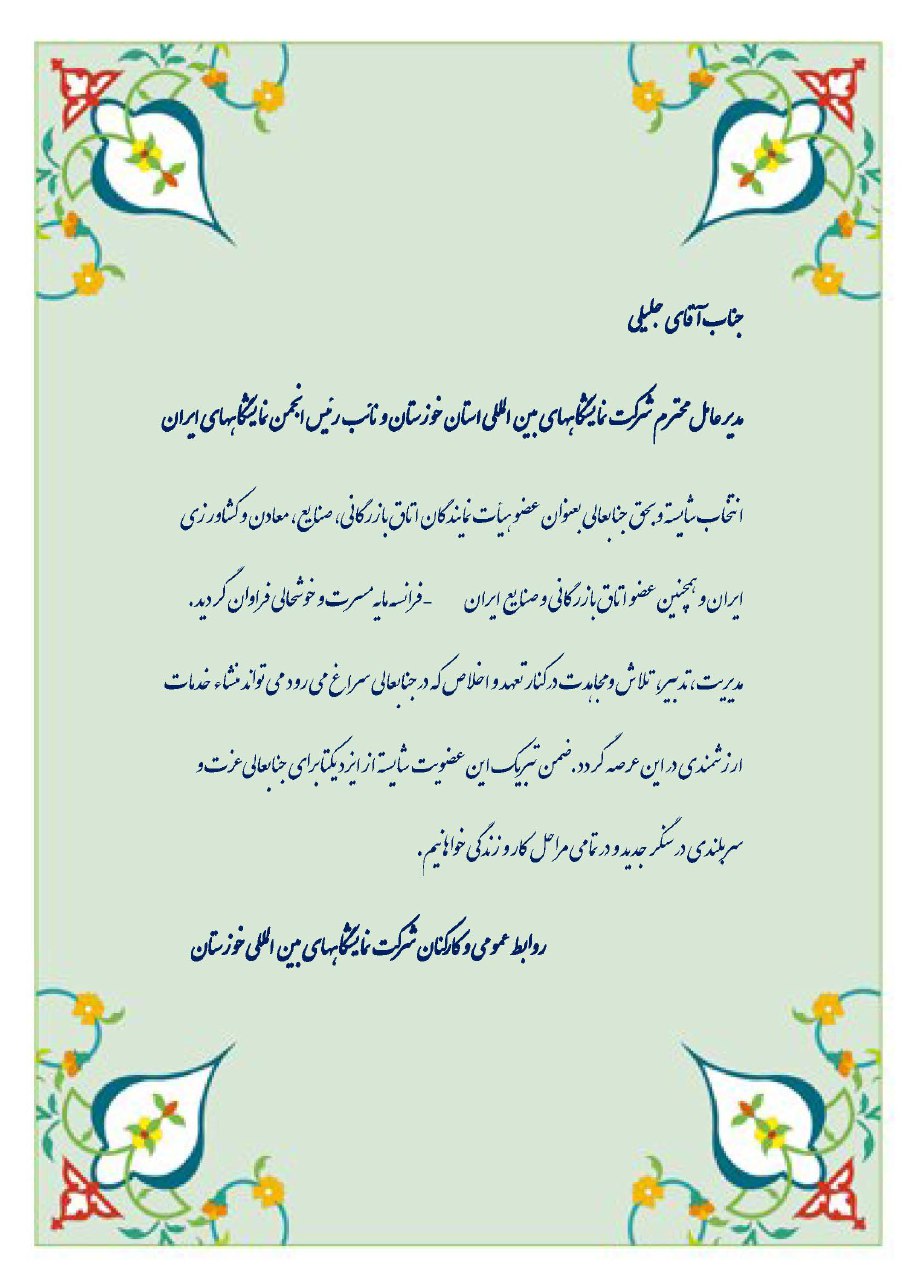 جناب آقای جلیلی
مدیر عامل محترم شرکت نمایشگاههای بین المللی استان خوزستان و نائب رئیس انجمن نمایشگاههای ایران
انتخاب شایسته و بحق جنابعالی بعنوان عضو هیأت نمایندگان اتاق بازرگانی، صنایع، معادن و کشاورزی
ایران و همچنین عضو اتاق بازرگانی و صنایع ایران -فرانسه مایه مسرت و خوشحالی فراوان گردید.
مدیریت، تدبیر، تلاش ومجاهدت در کنار تعهد و اخلاص که در جنابعالی سراغ می رود می تواند منشاء خدمات
ارزشمندی در این عرصه گردد. ضمن تبریک این عضویت شایسته از ایزد یکتا برای جنابعالی عزت و
سربلندی در سنگر جدید و در تمامی مراحل کار و زندگی خواهانیم.
روابط عمومی و کارکنان شرکت نمایشگاههای بین المللی خوزستان